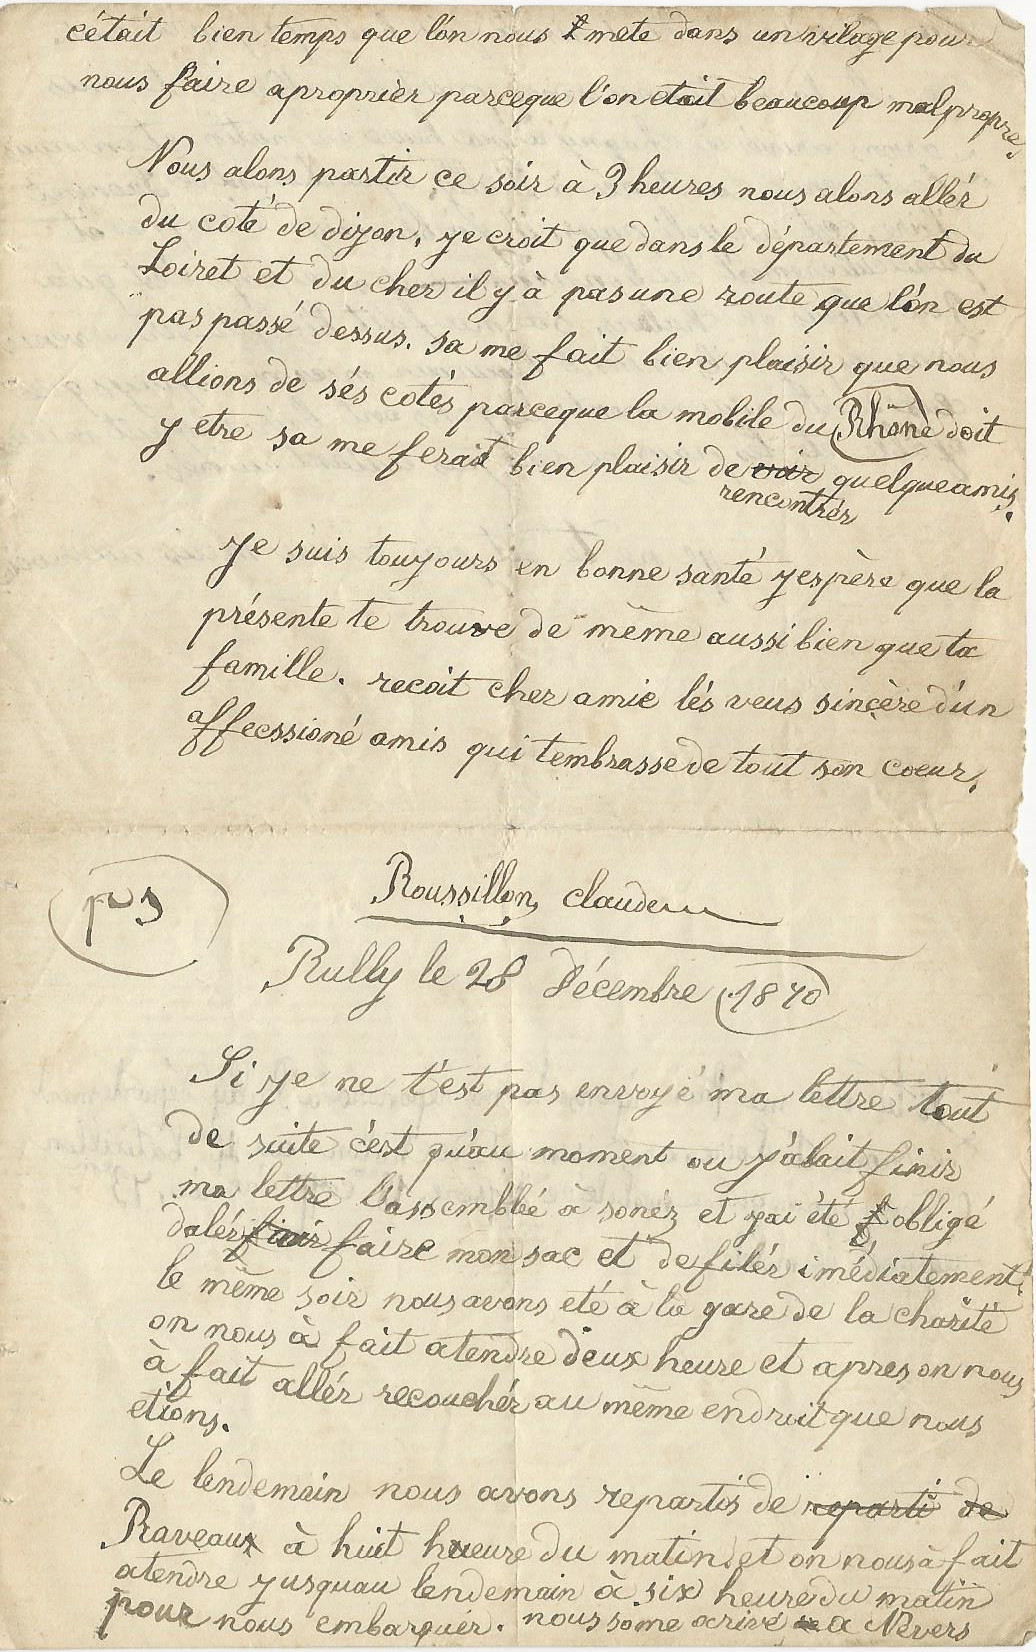 cétait bien temps que l'ón nous mete dans un vilage pour
nous faire aproprièr parceque l'on etait beaucoup malpropre.
Nous alons partir ce soir à 3 heures nous alons allér
du coté de dijon. je croit que dans le département du
Loiret et du cher il y à pas une route que l'ón est
pas passé dessus. sa me fait bien plaisir que nous
allions de sés cotés parceque la mobile du Rhône doit
y etre sa me ferait bien plaisir de voir quelque amis.
rencontrér
je suis toujours en bonne santé jespère que la
présente te trouve de même aussi bien que ta
famille. recoit cher amie lés veus sincère d'ún
affecssioné amis qui tembrasse de tout son coeur.
Roussillon claude
Rully le 28 décembre 1870
Si je ne t'est pas envoyé ma lettre tout
de suite c'ést qu'áu moment ou j'alait finir
ma lettre l'assemblée à sonéz et jai été obligé
dalér finir faire mon sac et de filér imédiatement
le même soir nous avons eté à la gare de la charité
on nous à fait atendre deux heure et apres on nous
à fait allér recouchér au même endroit que nous
etions.
Le lendemain nous avons repartis de reparti de
Raveaux à huit heure du matin et on nous à fait
atendre jusquau lendemain à six heure du matin
pour nous embarquér. nous some arivé a Nevers